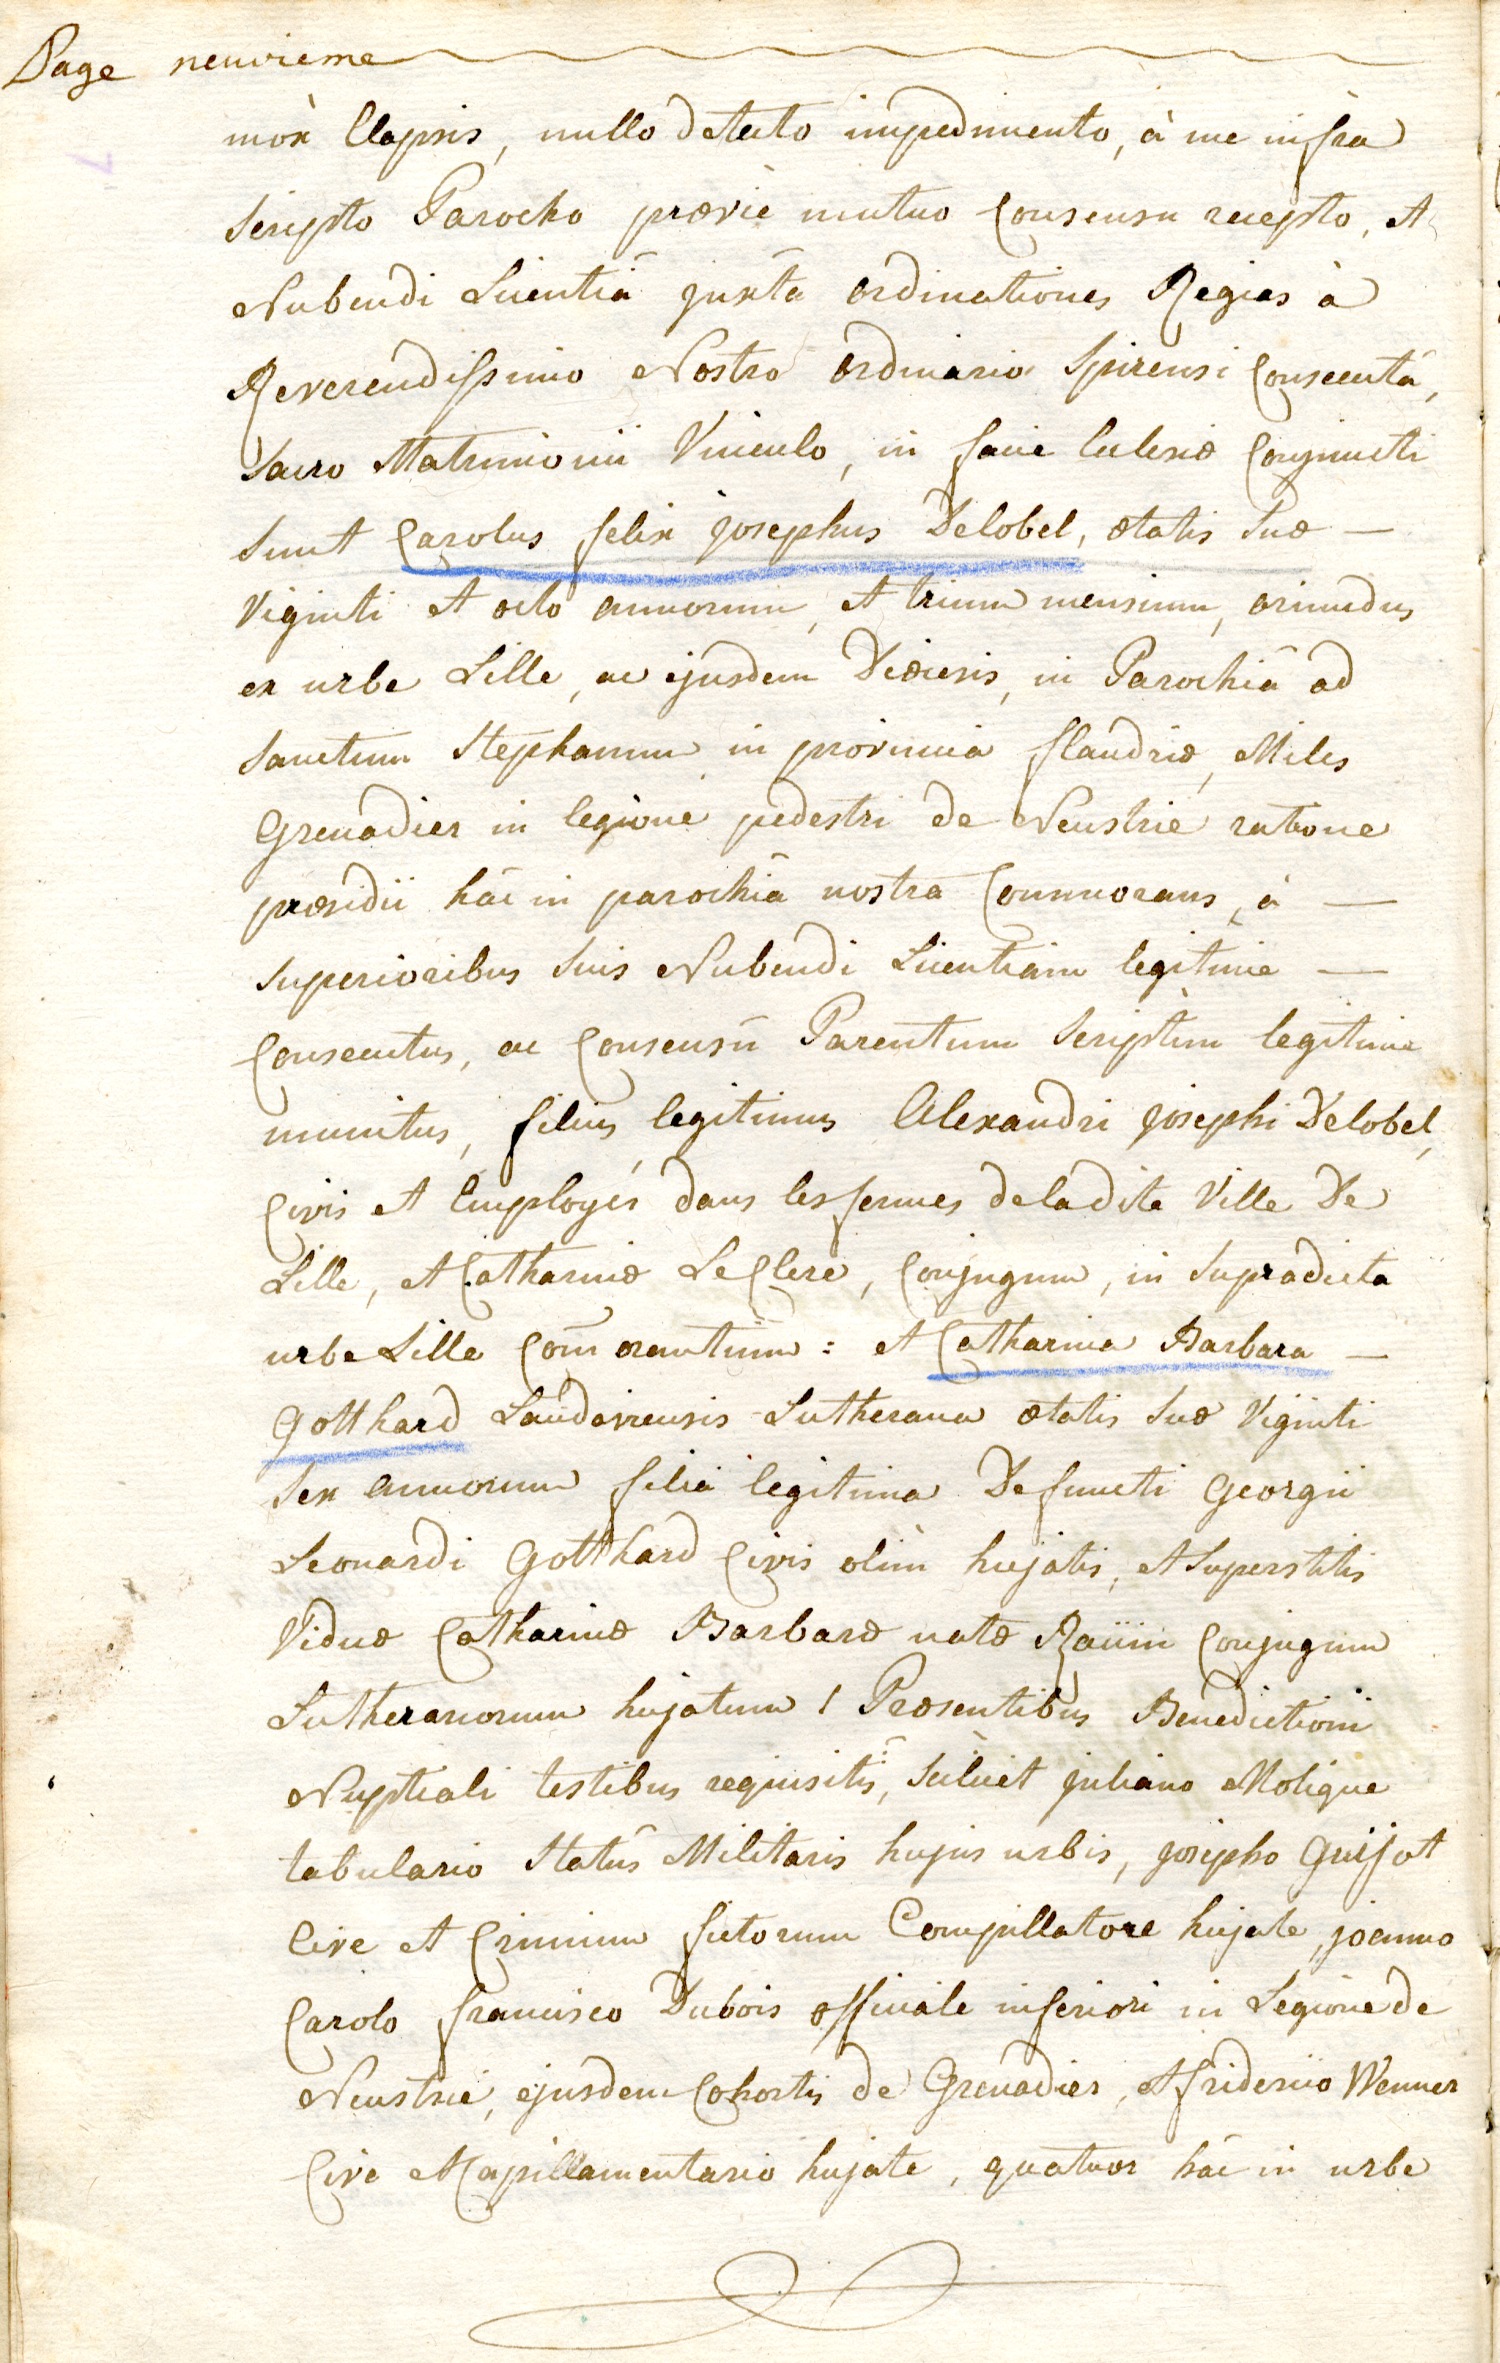 Page neuvieme
mox Elapsis, nullo detecto impedimento, à me infra
scripto Parocho prævie mutuo Consensu recepto, et
Nubendi Licentiâ juxta ordinationes Regias à
Reverendissimo Nostro ordinario Spirensi Consecutâ,
Sacro Matrimonii Vinculo, in facie Eclesiæ Conjuncti
Sunt Carolus felix josephus Delobel, ætatis Suæ —
Viginti et octo annorum, et trium mensium, oriundus
ex urbe Lille, ac ejusdem Diœcesis, in Parochiâ ad
Sanctum Stephanum in provincia flandriæ, Miles
Grenadier in legione pedestri de Neustrie ratione
præsidii hâc in parochiâ nostra Commorans, à —
Superioribus Suis Nubendi Licentiam legitime —
Consecutus, ac Consensû Parentum Scriptim legitime
munitus, filius legitimus Alexandri josephi Delobel,
Civis et Employés dans les fermes de ladite Ville De
Lille, et Catharinæ LeClerc, Conjugum, in Supradicta
urbe Lille Com̄orantium: et Catharina Barbara —
Gotthard Landavensis Lutherana ætatis Suæ Viginti
Sex annorum filia legitima Defuncti Georgii
Leonardi Gotthard Civis olim hujatis, et Superstitis
Viduæ Catharinæ Barbaræ natæ Conjugum
Lutheranorum hujatum / Præsentibus Benedictioni
Nuptiali testibus requisitis, Scilicet juliano Molique
tabulario Statûs Militaris hujus urbis, josepho Guijot
Cive et Crinium fictorum Compillatore hujate, joanno
Carolo francisco Dubois officiale inferiori in Legione de
Neustrie, ejusdem Cohortis de Grenadier, et friderico Wenner
Cive Capillamentario hujate, quatuor hâc in urbe